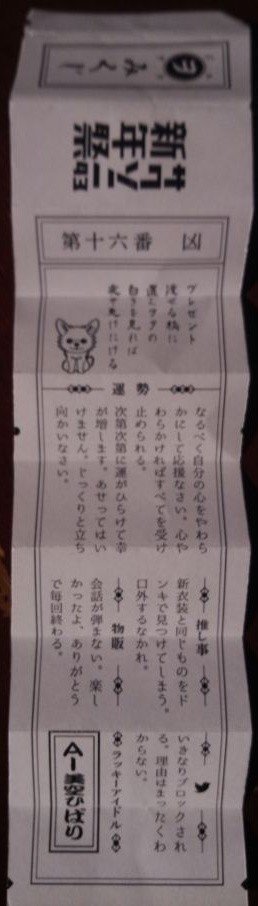 みくじ
新年祭
第十六番 凶
プレゼント
渡せる橋に
置くヲタの
白きを見れば
夜ぞ更けにける
運勢
なるべく自分の心をやわら
かにして応援なさい。心や
わらかければすべてを受け
止められる。
次第次第に運がひらけて幸
が増します。あせってはい
けません。じっくりと立ち
向かいなさい。
推し事
新衣装と同じものをド
ンキで見つけてしまう。
口外するなかれ。
物販
会話が弾まない。楽し
かったよ、ありがとう
で毎回終わる。
いきなりブロックされ
る。理由はまったくわ
からない。
ラッキーアイドル
AI美空ひばり